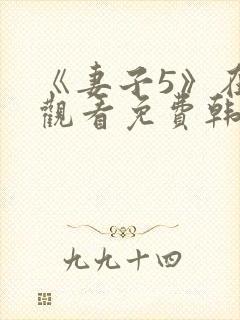 《妻子5》在
觀看免費韩
九九十四